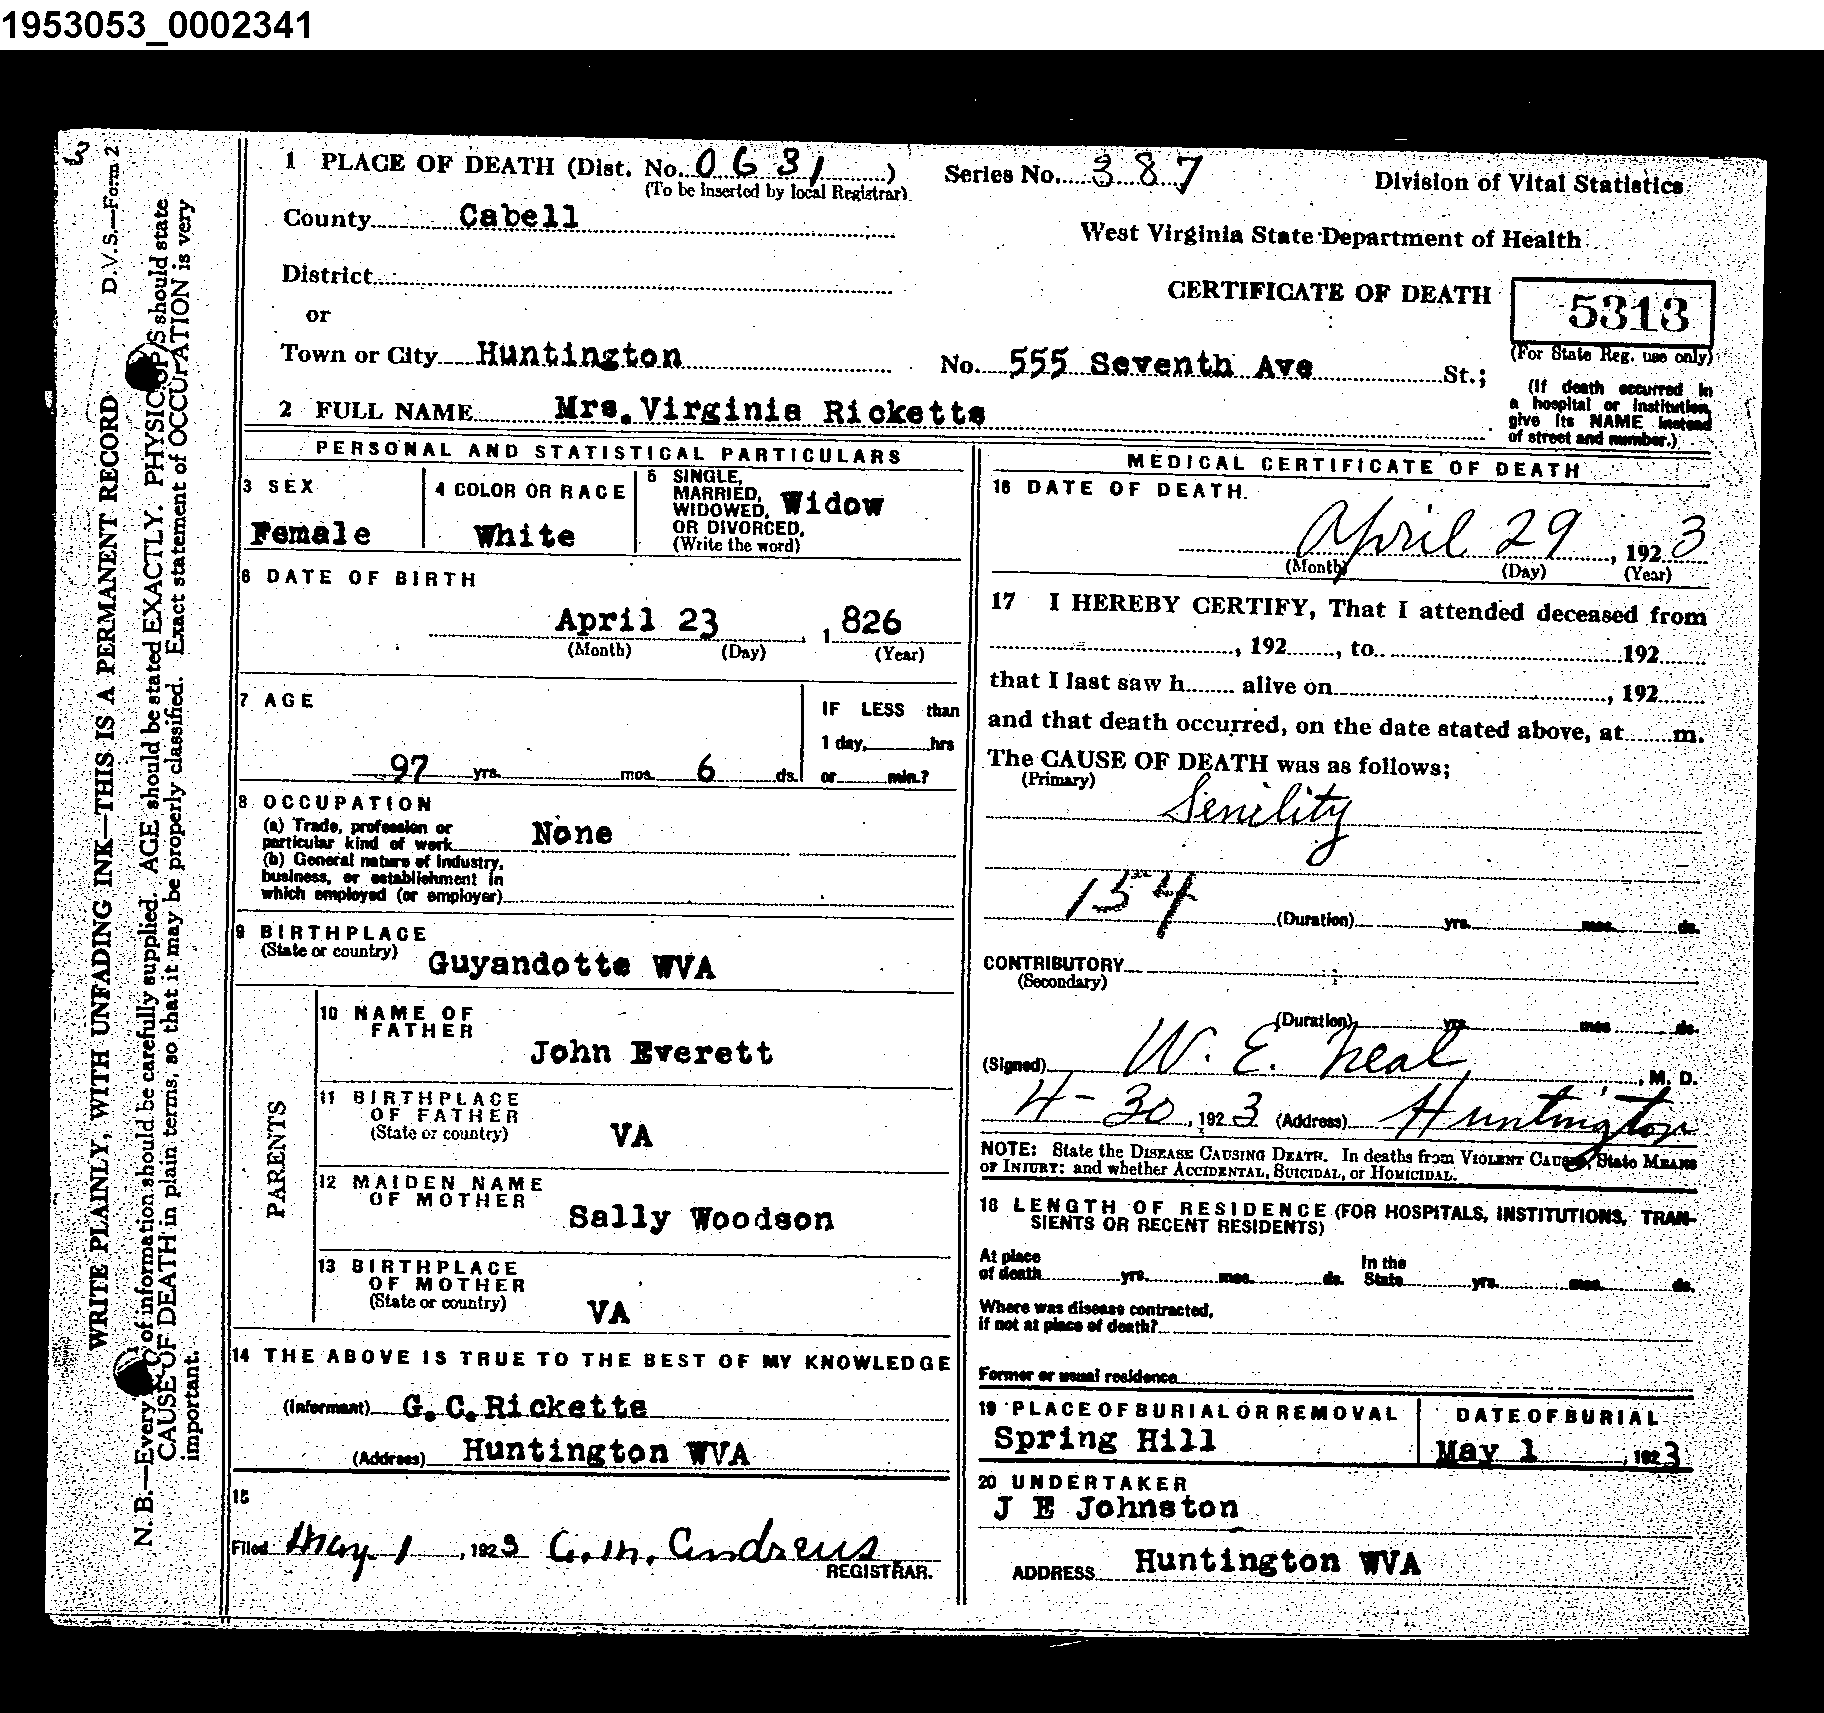 1953053_0002341
1 PLACE OF DEATH (Dist. No. 0631 )
(To be inserted by local Registrar)
Series No. 387
Division of Vital Statistics
County Cabell
West Virginia State Department of Health
District
CERTIFICATE OF DEATH
5313
(For State Reg. use only)
or
Town or City Huntington
No. 555 Seventh Ave St.;
(If death occurred in
a hospital or institution,
give its NAME instead
of street and number.)
2 FULL NAME Mrs. Virginia Ricketts
PERSONAL AND STATISTICAL PARTICULARS
3 SEX
Female
4 COLOR OR RACE
White
5 SINGLE,
MARRIED,
WIDOWED,
OR DIVORCED,
(Write the word)
Widow
6 DATE OF BIRTH
April 23, 1826
(Month) (Day) (Year)
7 AGE
97 yrs. mos. 6 ds.
IF LESS than
1 day, hrs
or min.?
8 OCCUPATION
(a) Trade, profession or
particular kind of work None
(b) General nature of industry,
business, or establishment in
which employed (or employer)
9 BIRTHPLACE
(State or country) Guyandotte WVA
PARENTS
10 NAME OF
FATHER
John Everett
11 BIRTHPLACE
OF FATHER
(State or country) VA
12 MAIDEN NAME
OF MOTHER
Sally Woodson
13 BIRTHPLACE
OF MOTHER
(State or country) VA
14 THE ABOVE IS TRUE TO THE BEST OF MY KNOWLEDGE
(Informant) G. C. Ricketts
(Address) Huntington WVA
15
Filed May 1, 1923 G. M. Andrews
REGISTRAR.
MEDICAL CERTIFICATE OF DEATH
16 DATE OF DEATH.
April 29, 1923
(Month) (Day) (Year)
17 I HEREBY CERTIFY, That I attended deceased from
, 192 , to 192
that I last saw h alive on , 192
and that death occurred, on the date stated above, at m.
The CAUSE OF DEATH was as follows;
(Primary)
Senility
154 (Duration) yrs. mos. ds.
CONTRIBUTORY
(Secondary)
(Duration) yrs. mos. ds.
(Signed) W. E. Neal, M. D.
4-30, 1923 (Address) Huntington
NOTE: State the DISEASE CAUSING DEATH. In deaths from VIOLENT CAUSES, State MEANS
OF INJURY: and whether ACCIDENTAL, SUICIDAL, or HOMICIDAL.
18 LENGTH OF RESIDENCE (FOR HOSPITALS, INSTITUTIONS, TRAN-
SIENTS OR RECENT RESIDENTS)
At place
of death yrs. mos. ds.
In the
State yrs. mos. ds.
Where was disease contracted,
if not at place of death?
Former or usual residence
19 PLACE OF BURIAL OR REMOVAL
Spring Hill
DATE OF BURIAL
May 1, 1923
20 UNDERTAKER
J E Johnston
ADDRESS Huntington WVA
3
D.V.S.—Form 2
WRITE PLAINLY, WITH UNFADING INK—THIS IS A PERMANENT RECORD
N. B.—Every of information should be carefully supplied. AGE should be stated EXACTLY. PHYSICIANS should state
CAUSE OF DEATH in plain terms, so that it may be properly classified. Exact statement of OCCUPATION is very
important.